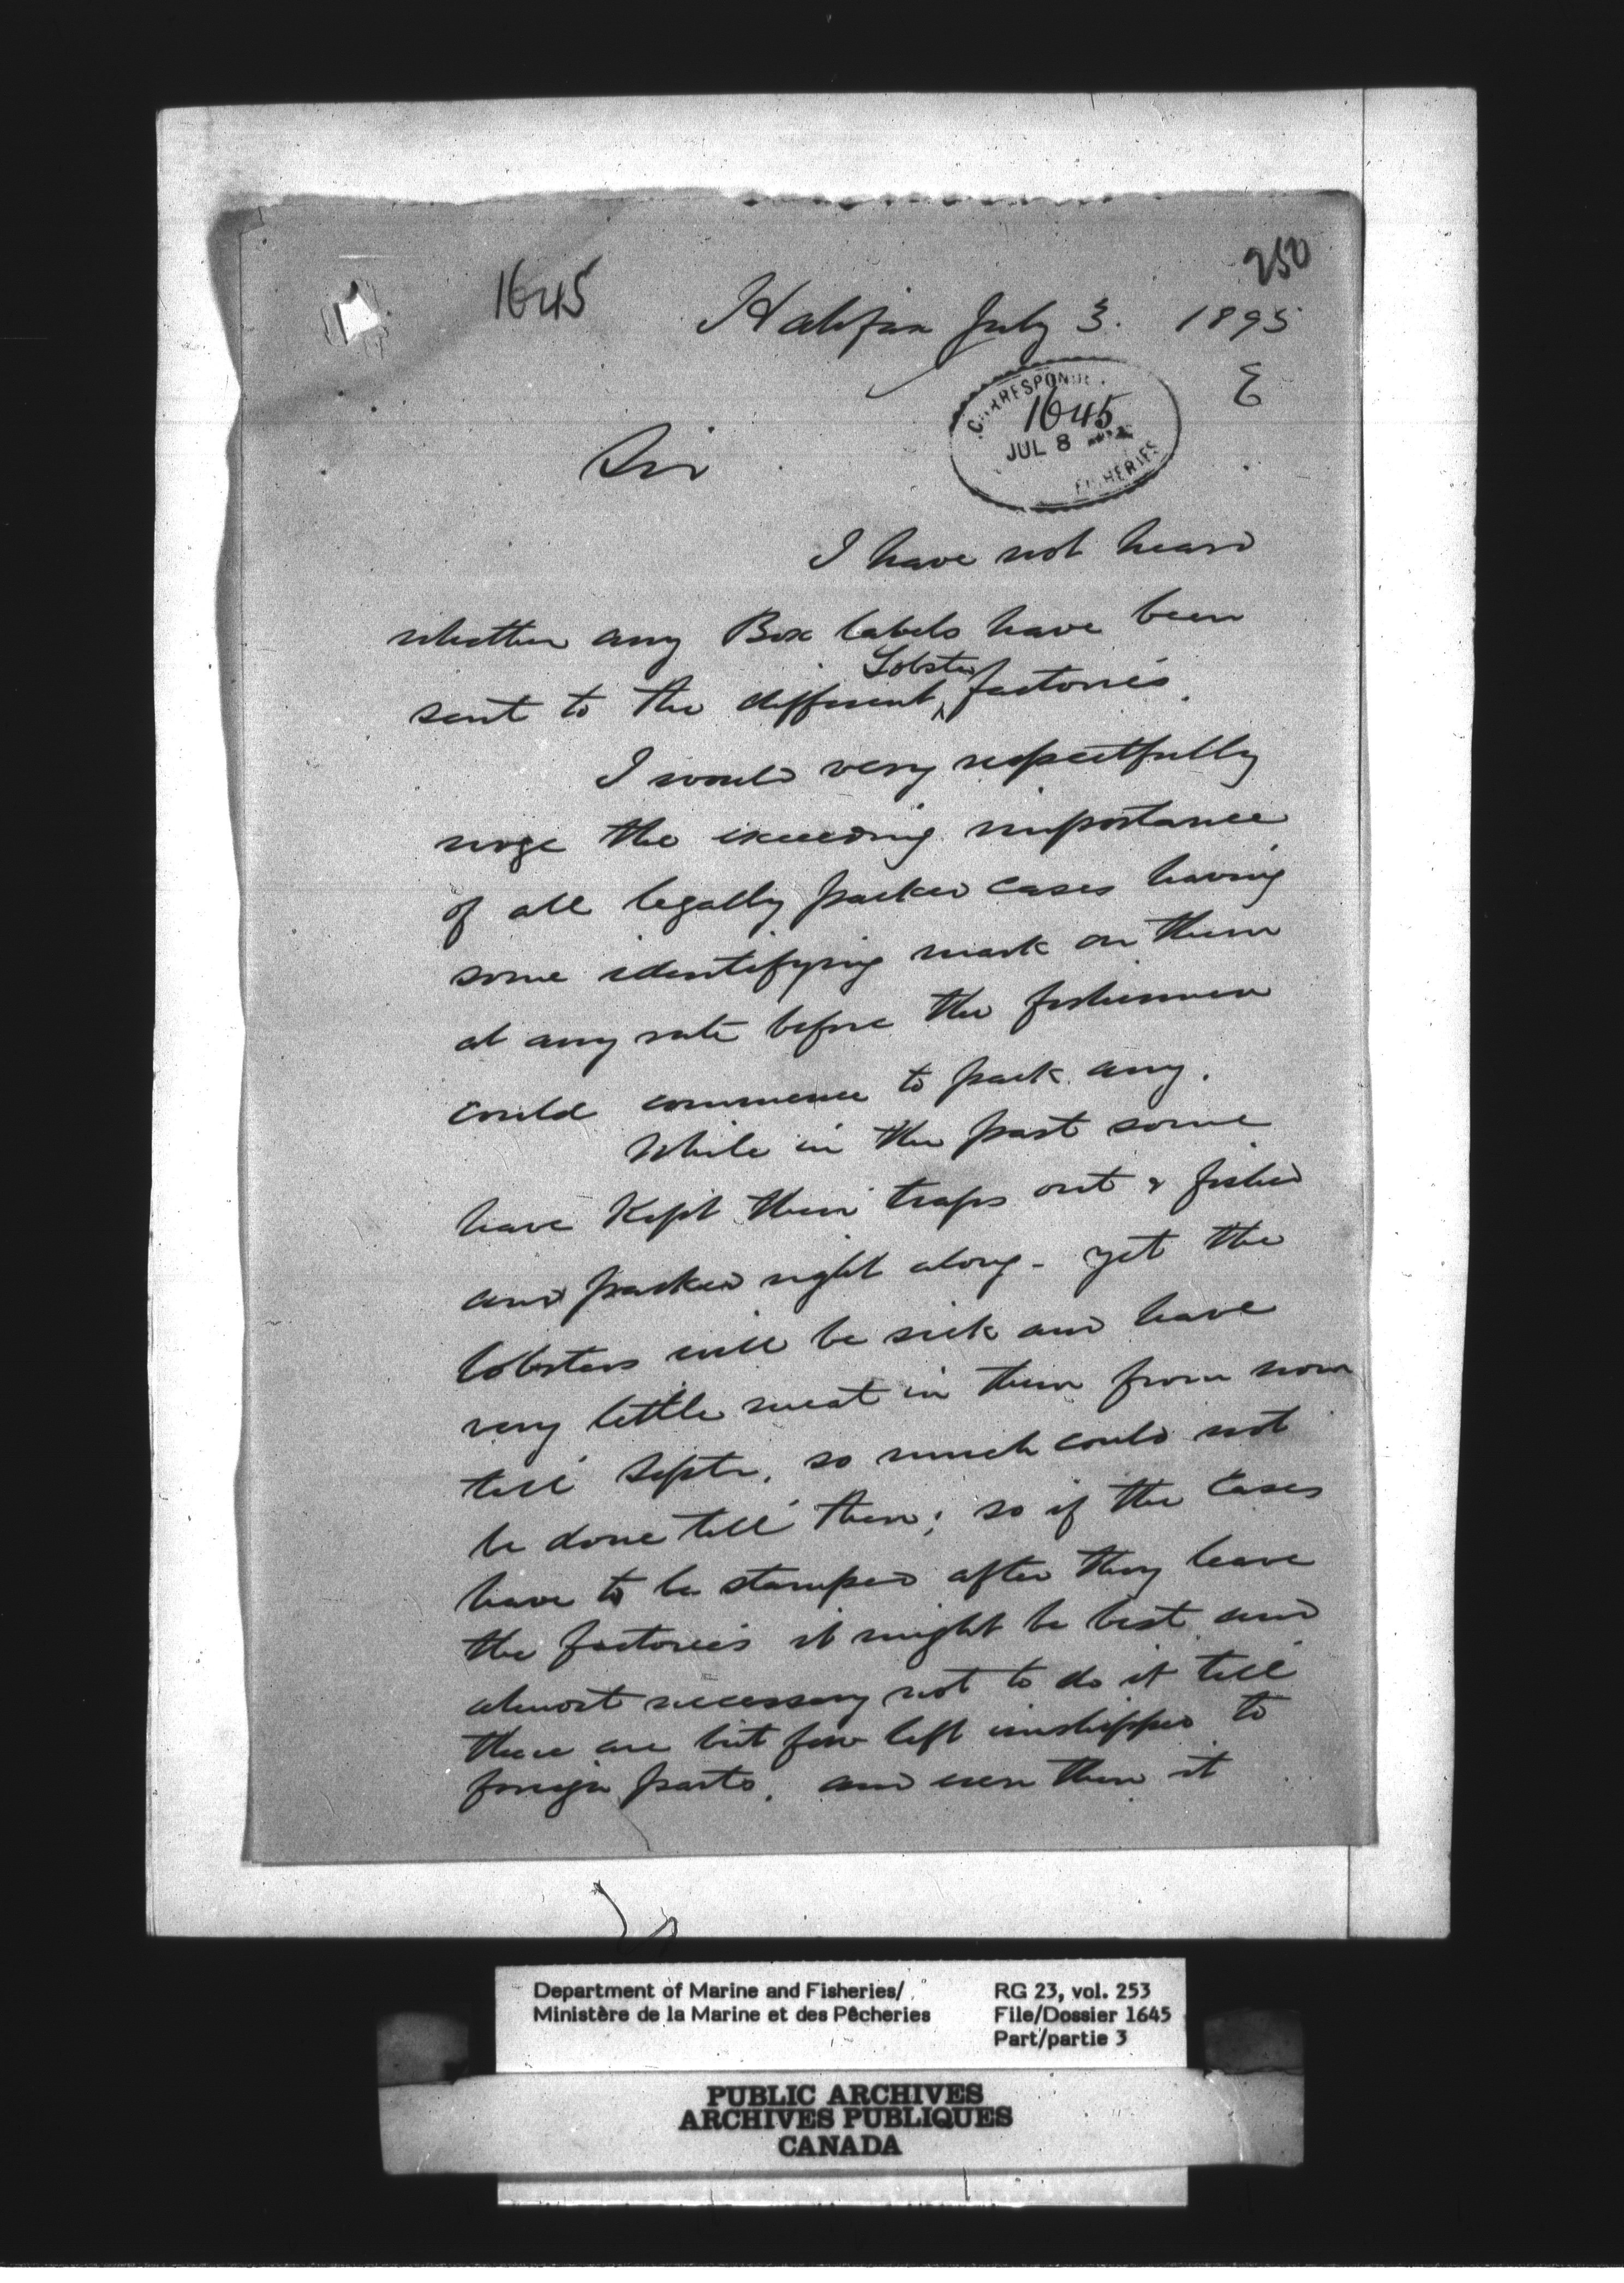 1645
250
Halifax July 3. 1895
E
CORRESPONDE
1645
JUL 8
FISHERIES
Sir
I have not heard
whether any Box labels have been
sent to the different Lobster factories.
I would very respectfully
urge the exceeding importance
of all legally packed cases having
some identifying mark on them
at any rate before the fishermen
could commence to pack any.
While in the past some
have Kept their traps out & fished
and packed right along - yet the
lobsters will be sick and have
very little meat in them from now
till Septr. so much could not
be done till then; so if the Cases
have to be stamped after they leave
the factories it might be best and
almost necessary not to do it till
there are but few left unshipped to
foreign parts. and even then it
Department of Marine and Fisheries/
Ministère de la Marine et des Pêcheries
RG 23, vol. 253
File/Dossier 1645
Part/partie 3
PUBLIC ARCHIVES
ARCHIVES PUBLIQUES
CANADA